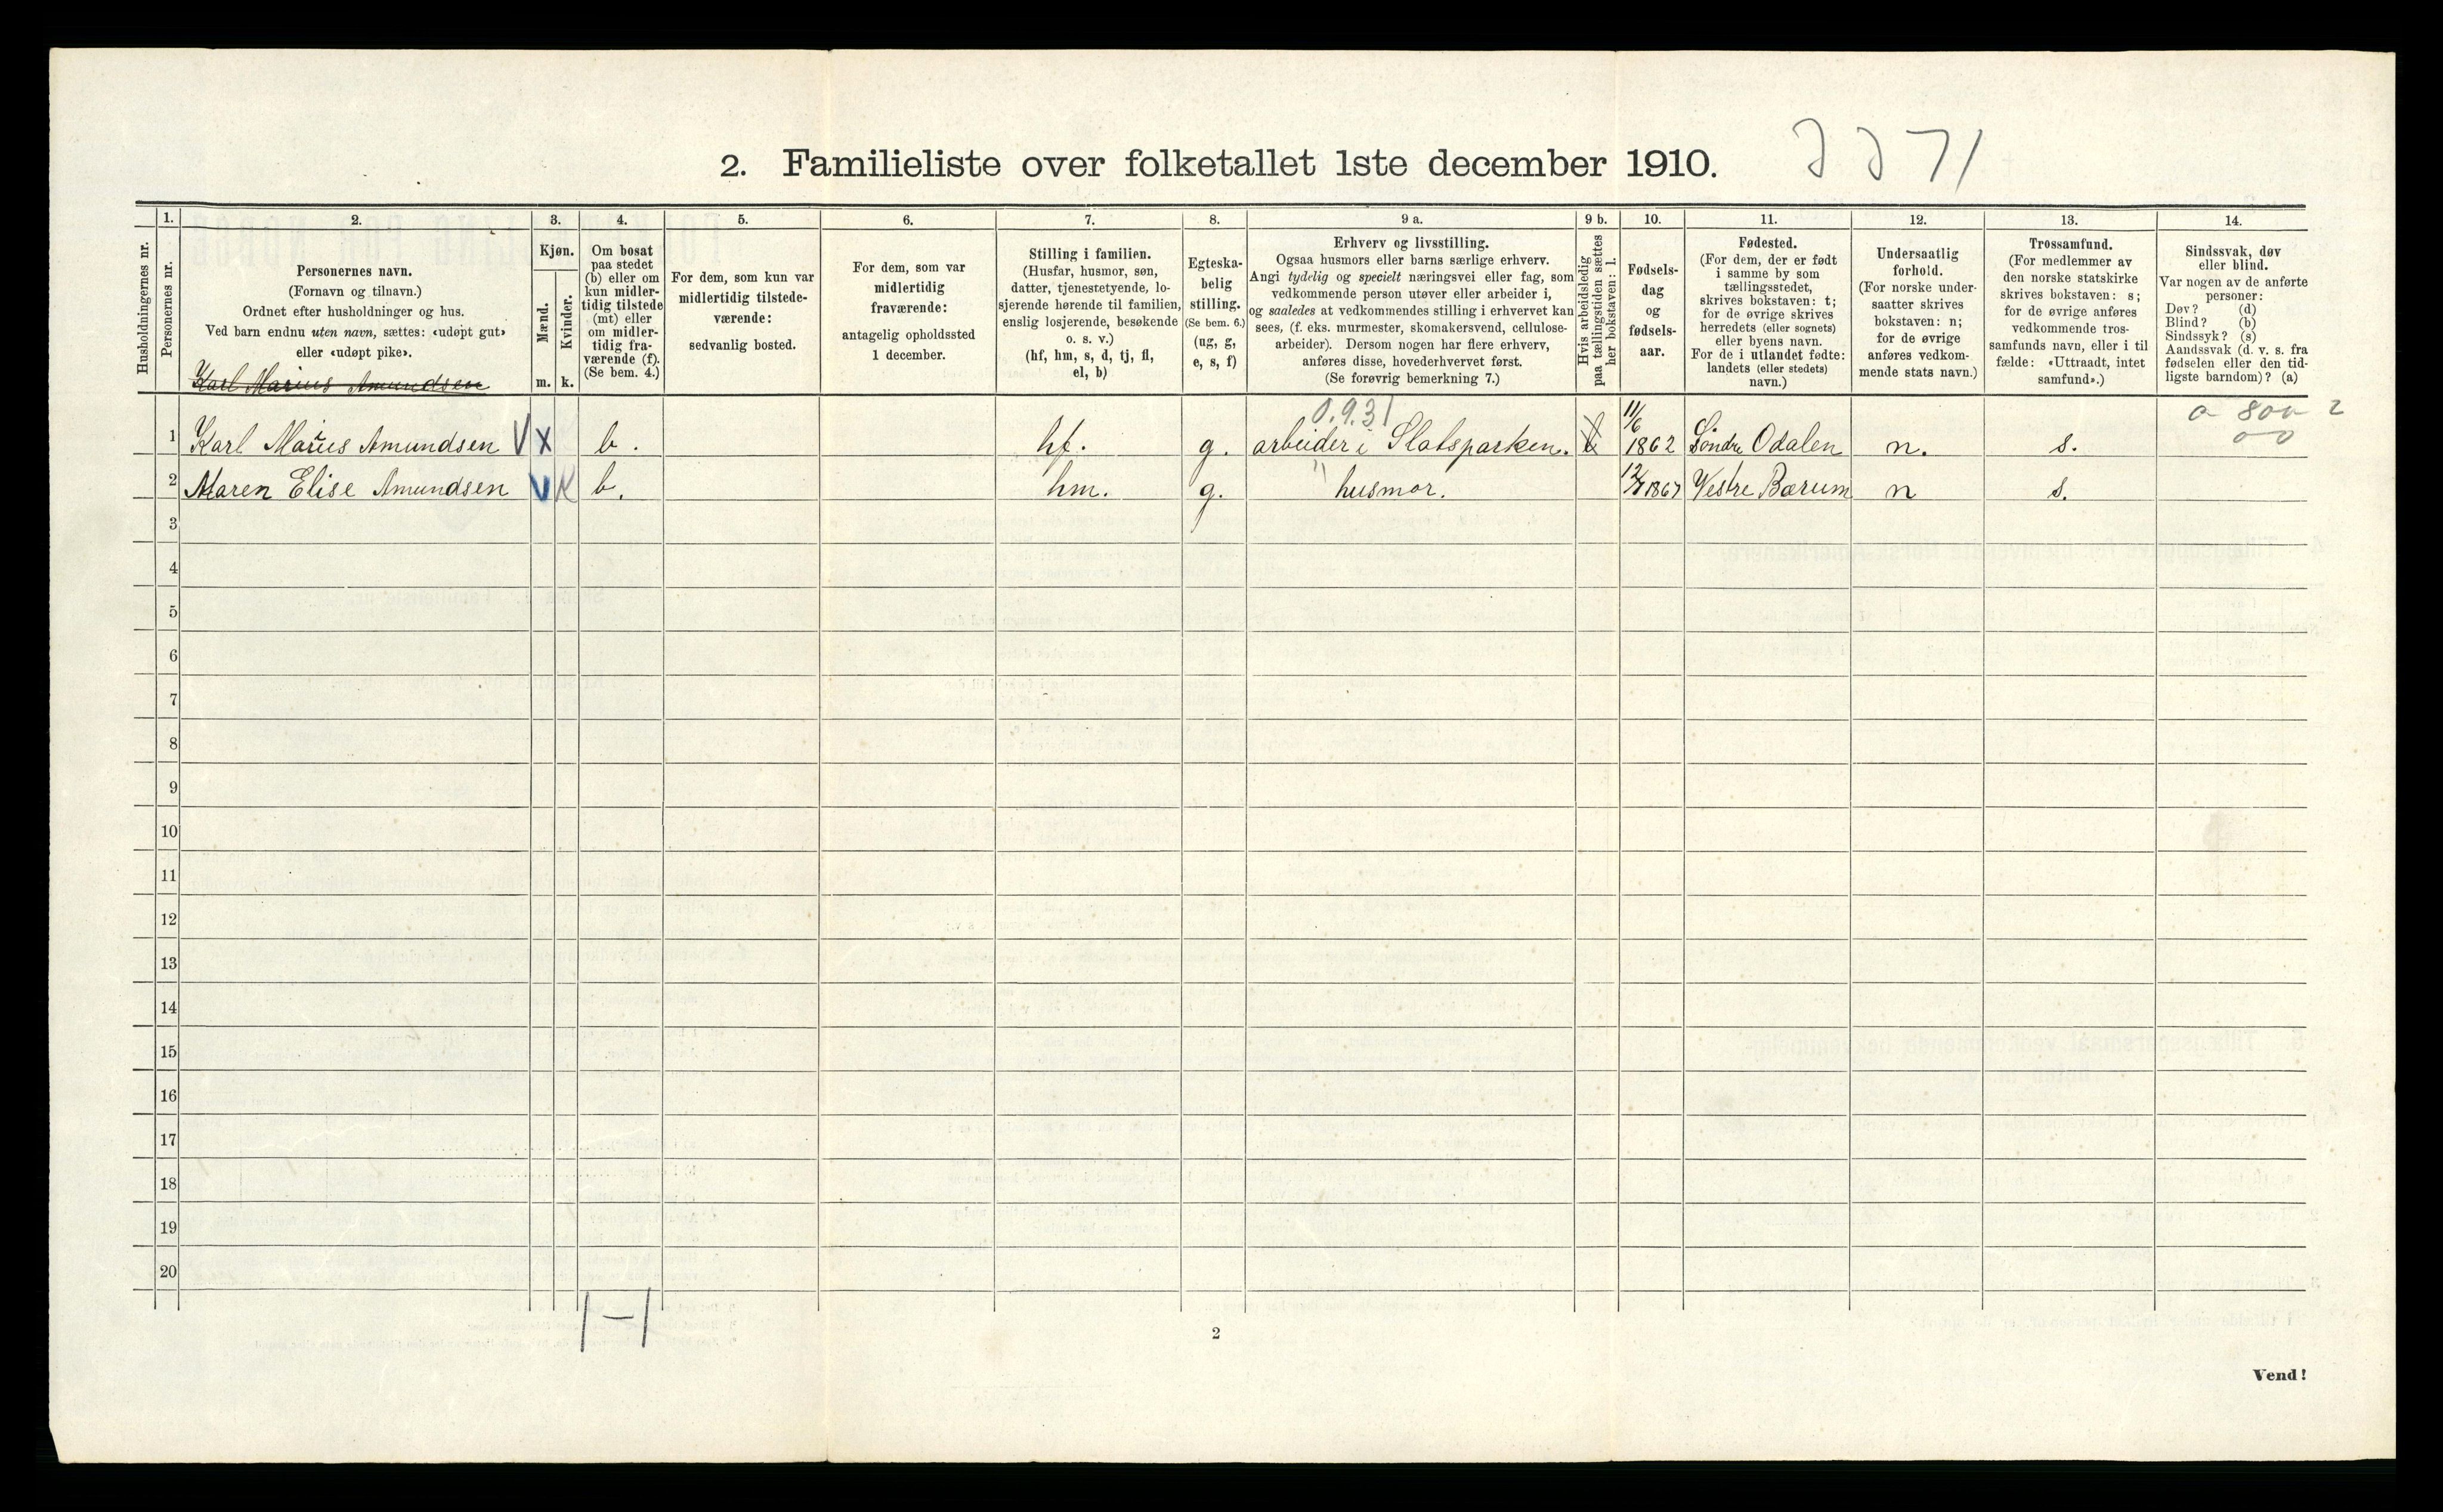 2. Familieliste over folketallet 1ste december 1910.
Husholdningernes nr.
1.
Personernes nr.
2.
Personernes navn.
(Fornavn og tilnavn.)
Ordnet efter husholdninger og hus.
Ved barn endnu uten navn, sættes: «udøpt gut»
eller «udøpt pike».
Karl Marius Amundsen
3.
Kjøn.
Mænd.
Kvinder.
m. k.
4.
Om bosat
paa stedet
(b) eller om
kun midler-
tidig tilstede
(mt) eller
om midler-
tidig fra-
værende (f).
(Se bem. 4.)
5.
For dem, som kun var
midlertidig tilstede-
værende:
sedvanlig bosted.
6.
For dem, som var
midlertidig
fraværende:
antagelig opholdssted
1 december.
7.
Stilling i familien.
(Husfar, husmor, søn,
datter, tjenestetyende, lo-
sjerende hørende til familien,
enslig losjerende, besøkende
o. s. v.)
(hf, hm, s, d, tj, fl,
el, b)
8.
Egteska-
belig
stilling.
(Se bem. 6.)
(ug, g,
e, s, f)
9 a.
Erhverv og livsstilling.
Ogsaa husmors eller barns særlige erhverv.
Angi tydelig og specielt næringsvei eller fag, som
vedkommende person utøver eller arbeider i,
og saaledes at vedkommendes stilling i erhvervet kan
sees, (f. eks. murmester, skomakersvend, cellulose-
arbeider). Dersom nogen har flere erhverv,
anføres disse, hovederhvervet først.
(Se forøvrig bemerkning 7.)
9 b.
Hvis arbeidsledig
paa tællingstiden sættes
her bokstaven: l.
10.
Fødsels-
dag
og
fødsels-
aar.
11.
Fødested.
(For dem, der er født
i samme by som
tællingsstedet,
skrives bokstaven: t;
for de øvrige skrives
herredets (eller sognets)
eller byens navn.
For de i utlandet fødte:
landets (eller stedets)
navn.)
12.
Undersaatlig
forhold.
(For norske under-
saatter skrives
bokstaven: n;
for de øvrige
anføres vedkom-
mende stats navn.)
13.
Trossamfund.
(For medlemmer av
den norske statskirke
skrives bokstaven: s;
for de øvrige anføres
vedkommende tros-
samfunds navn, eller i til
fælde: «Uttraadt, intet
samfund».)
14.
Sindssvak, døv
eller blind.
Var nogen av de anførte
personer:
Døv? (d)
Blind? (b)
Sindssyk? (s)
Aandssvak (d. v. s. fra
fødselen eller den tid-
ligste barndom)? (a)
0.9.31
1 Karl Marius Amundsen V x b. hf. g. arbeider i Slotsparken. 11/6 1862 Søndre Odalen n. s.
2 Maren Elise Amundsen V K b. hm. g. " husmor. 1867 Vestre Bærum n s.
3
4
5
6
7
8
9
10
11
12
13
14
15
16
17
18
19
20
1-1
2
Vend!